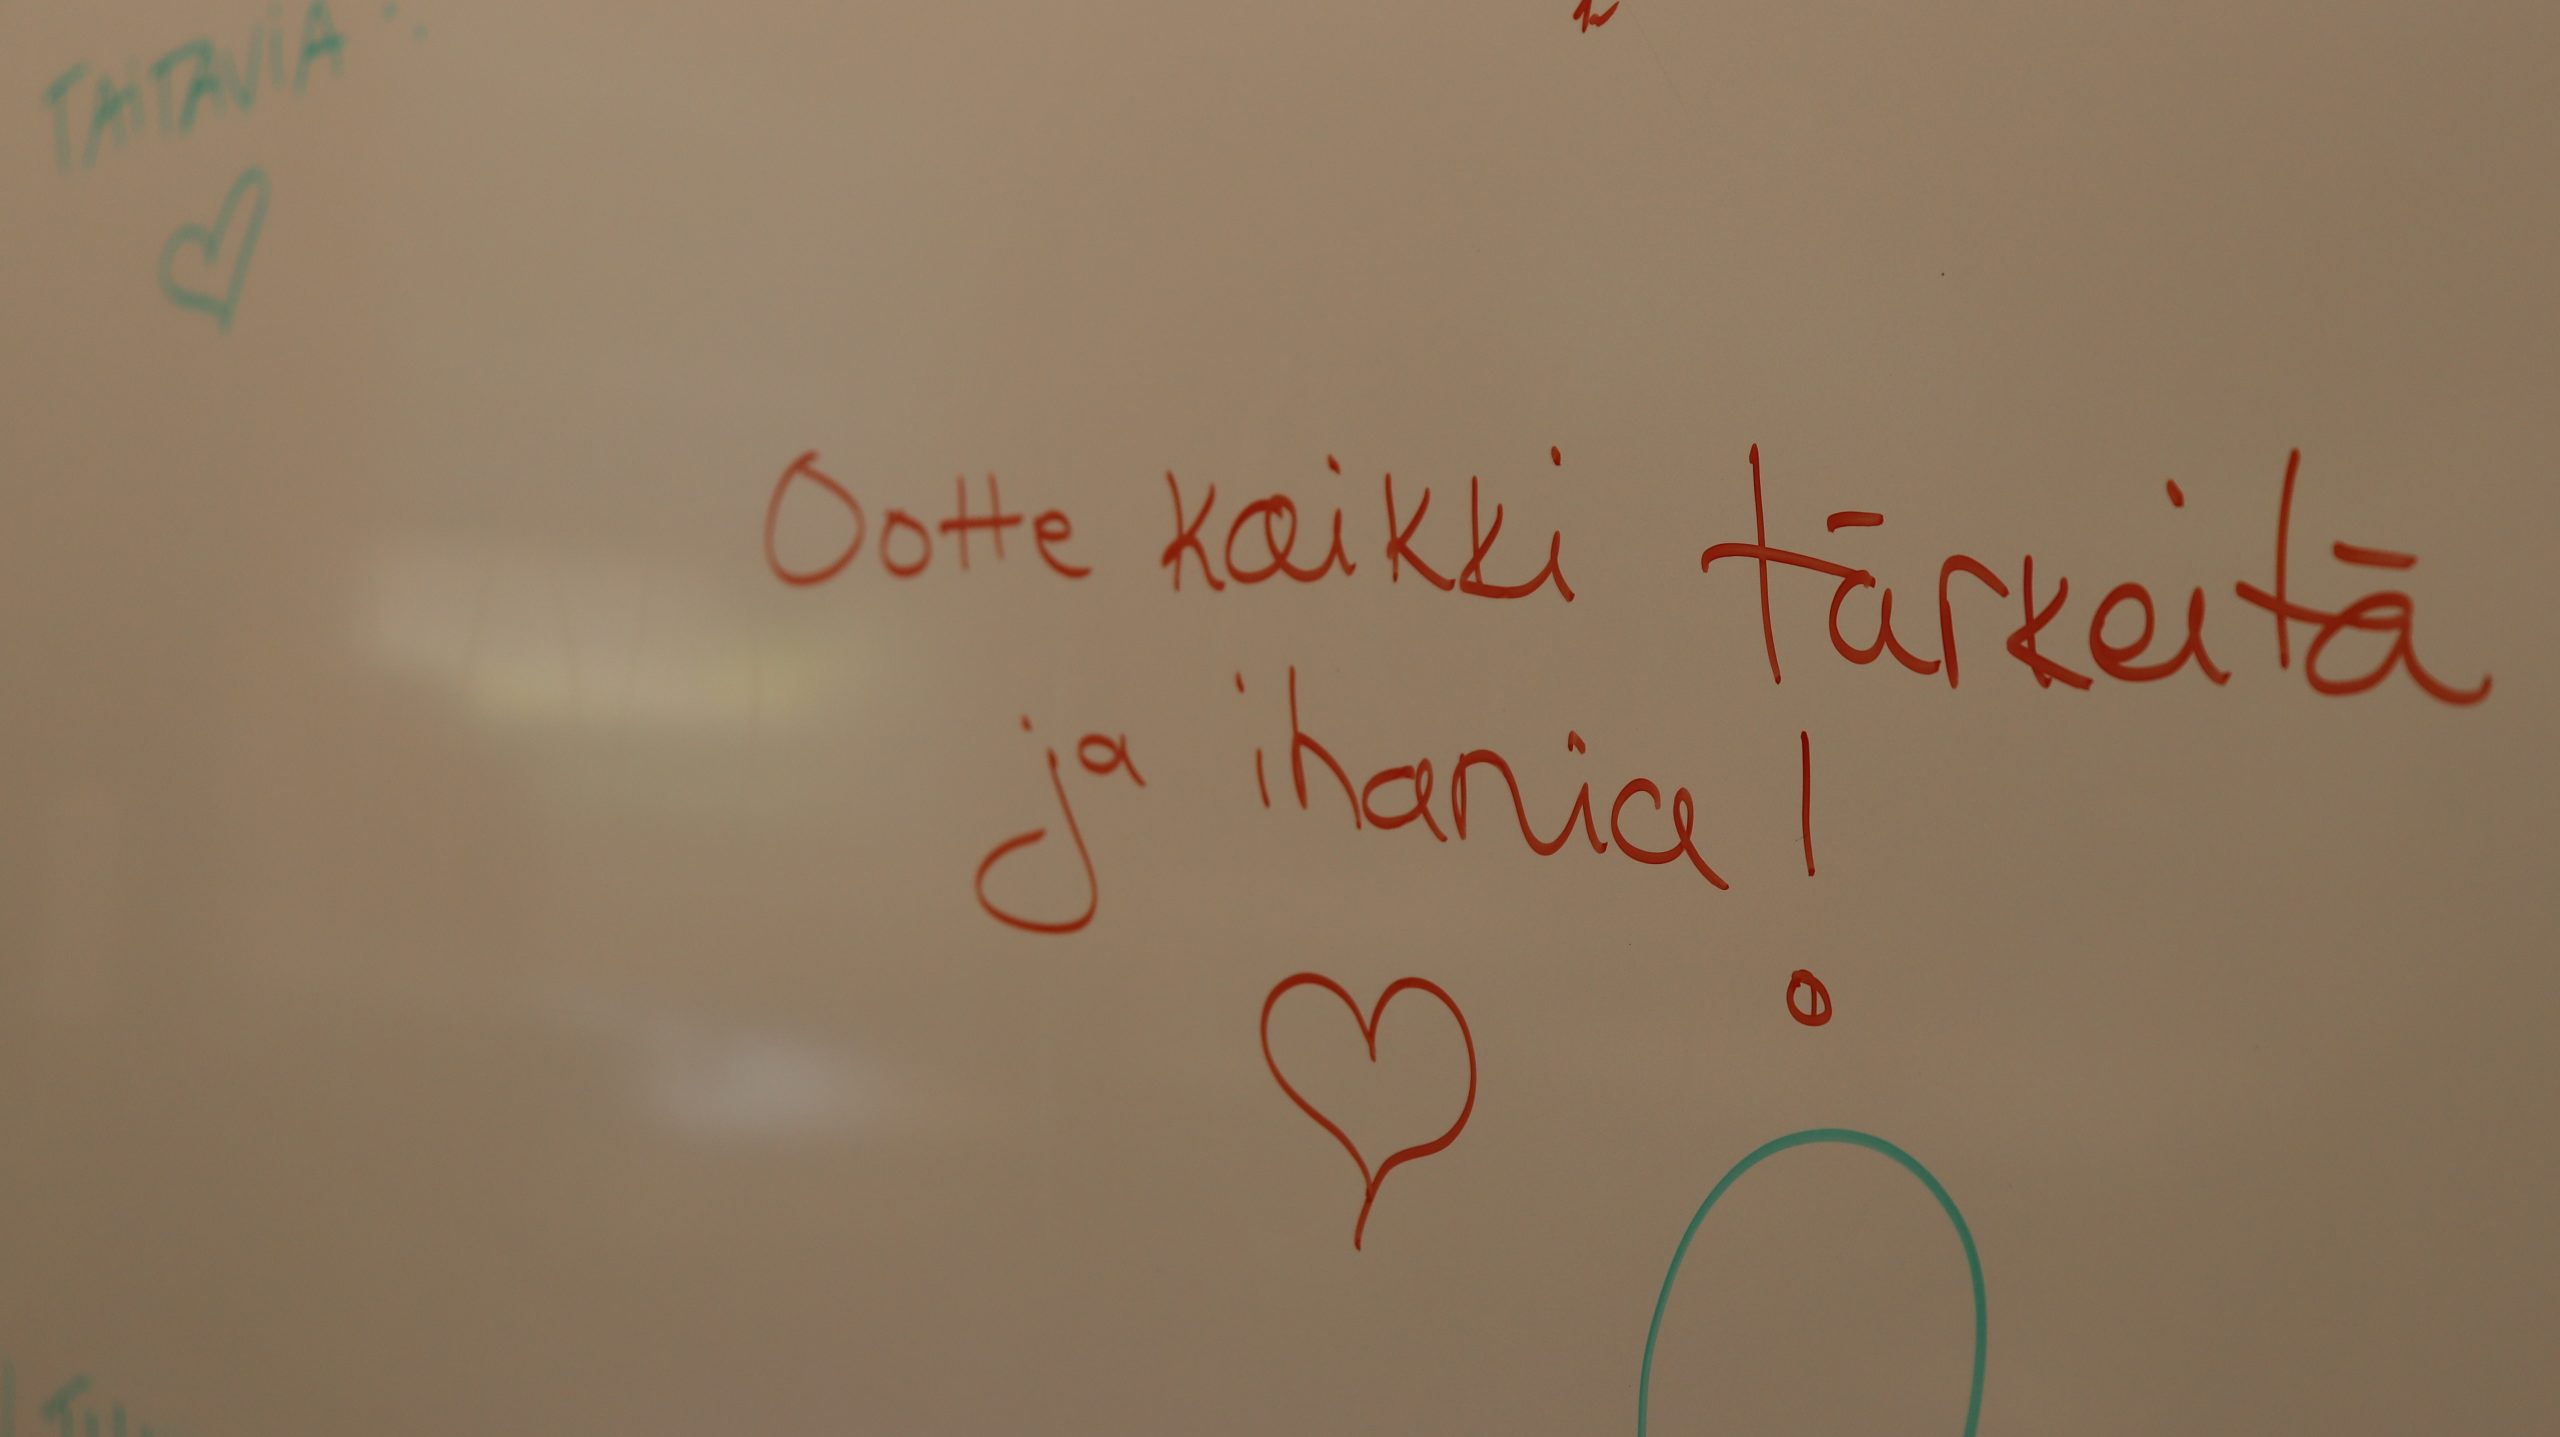 TAITAVIA
Ootte kaikki tärkeitä
ja ihania!